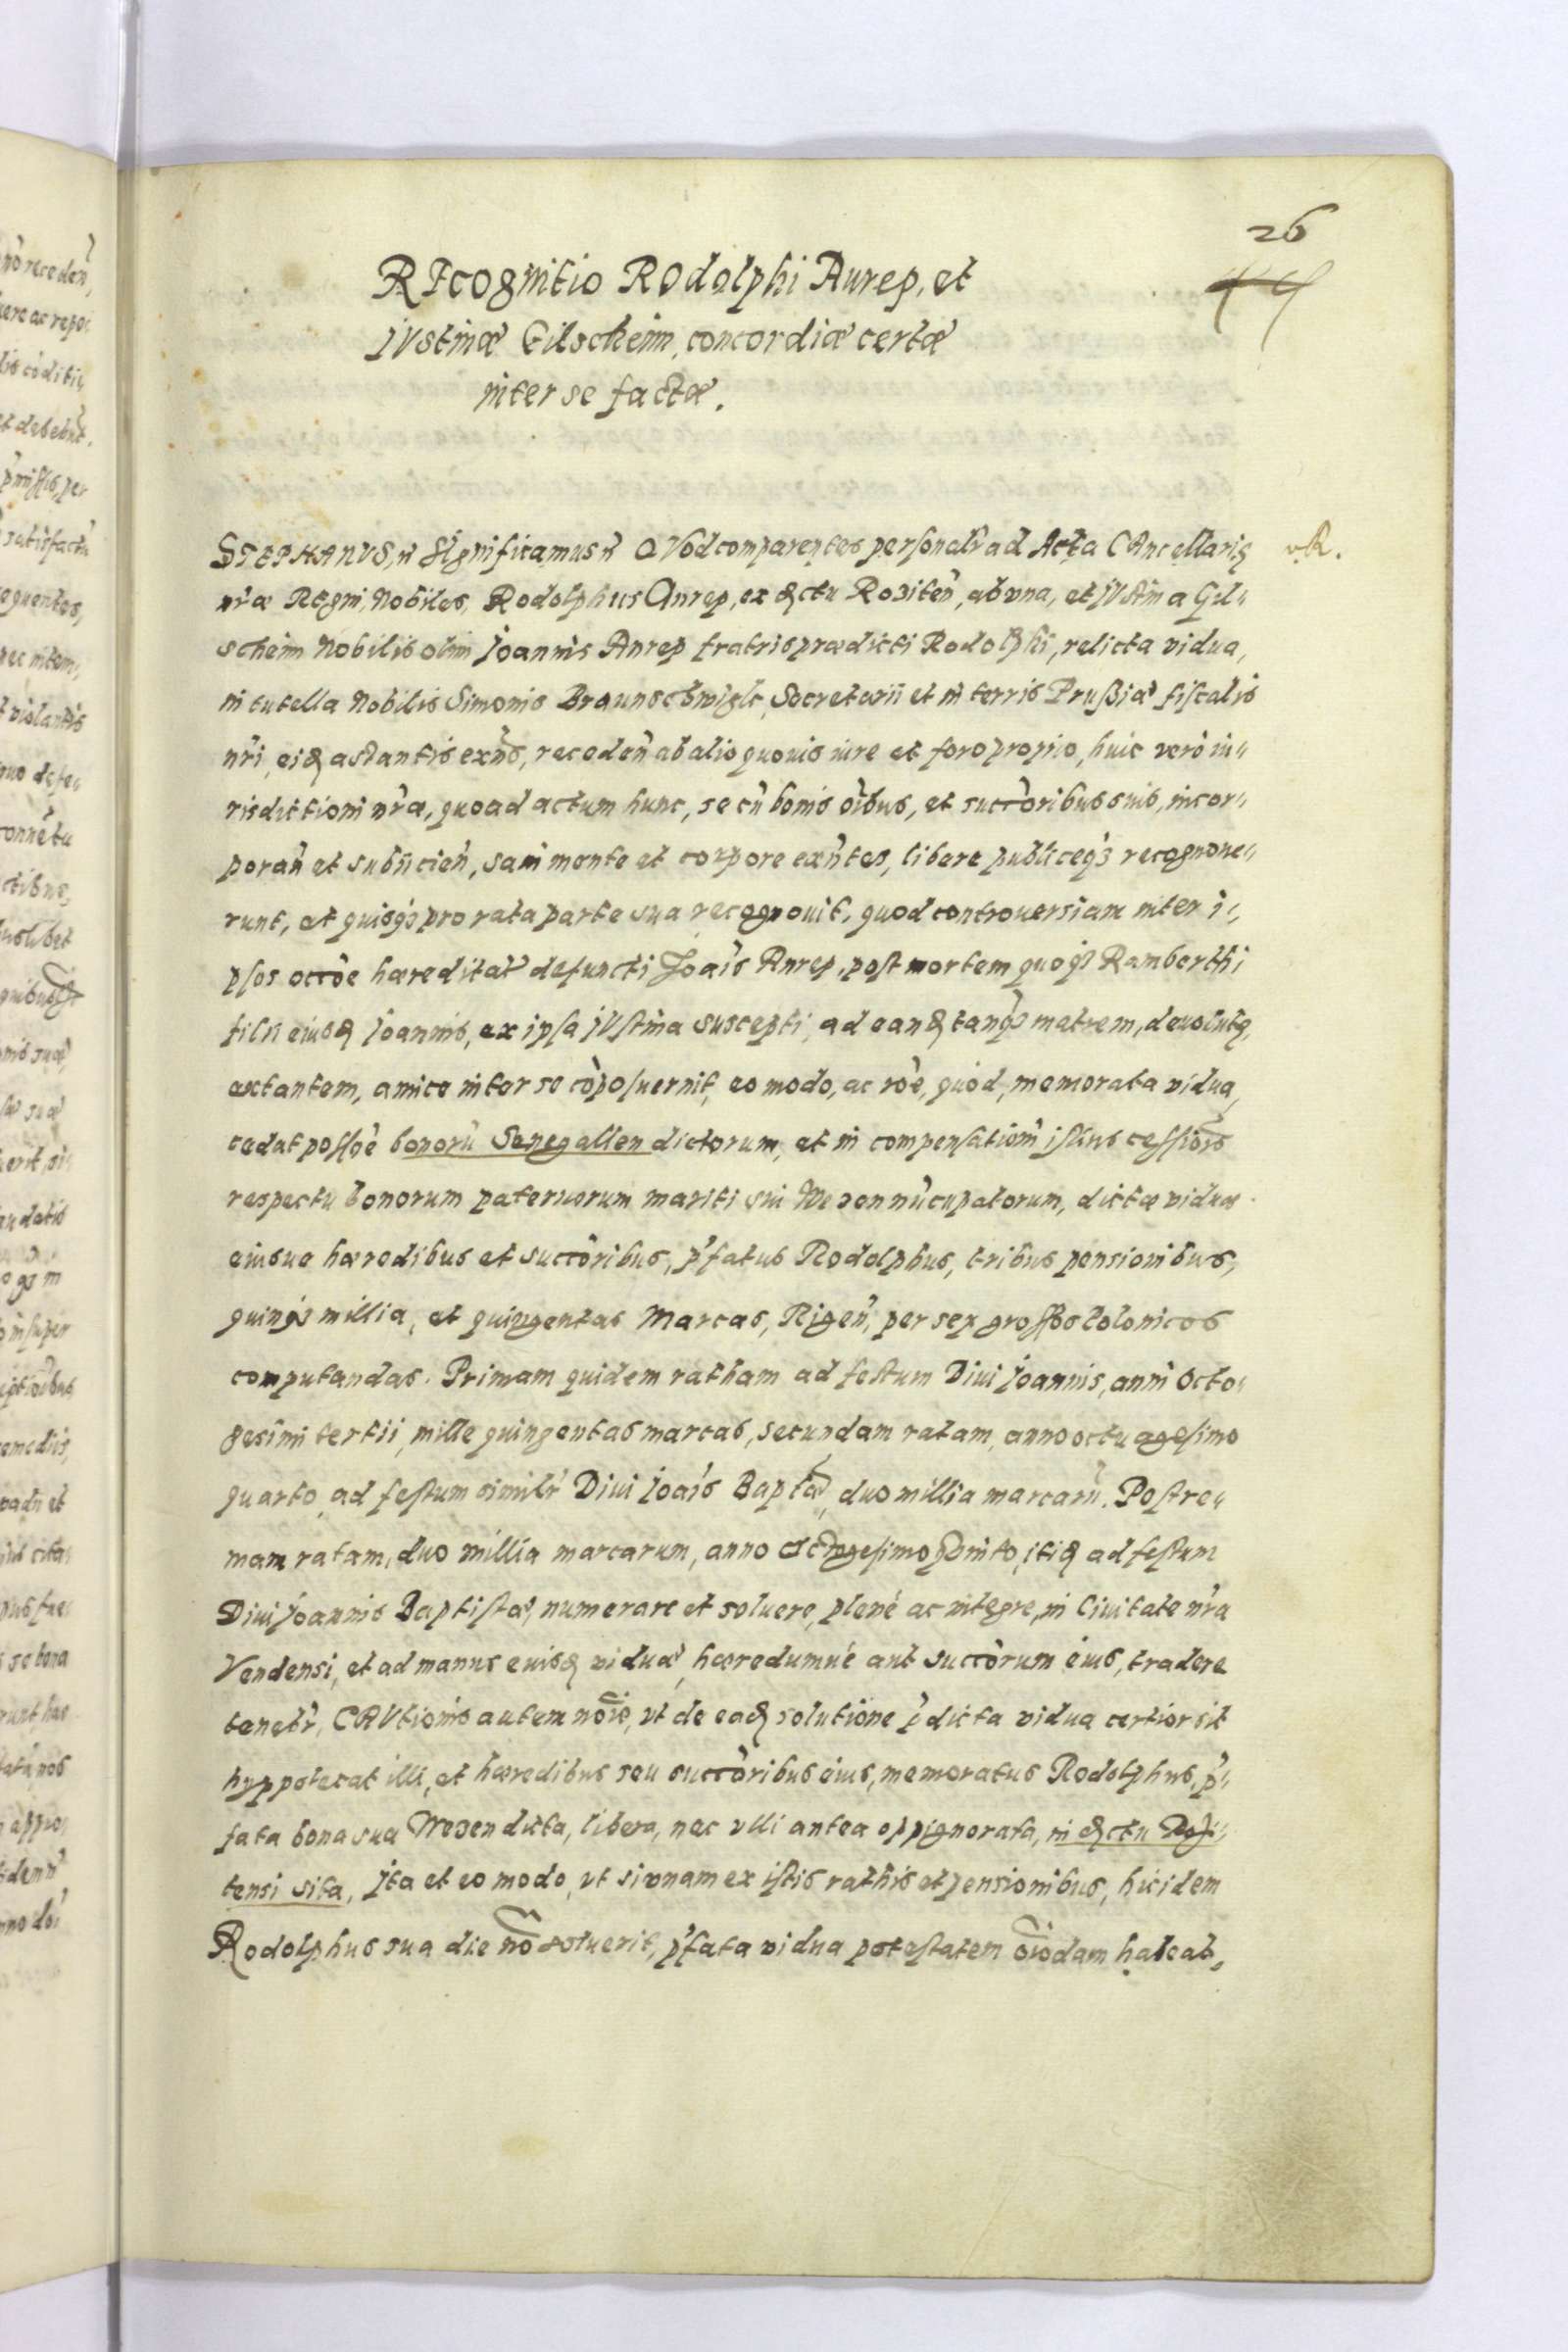 26
REcognitio ROdolphi Anrep, et
JVstinæ Gilscheim, concordiæ certæ
inter se factæ.
STEPHANVS, ñ Significamus ñ QVod comparentes personalr̃ ad Acta CAncellarię
nr̃æ REgni, Nobiles, Rodolphus Anrep, ex districtu Rositeñ, ab vna, et JVstina Gil„
scheim Nobilis olim Joannis Anrep fratris prædicti Rodolphi, relicta vidua,
in tutella Nobilis Simonis Braunschwigk, Secretarii et in terris Prussiæ fiscalis
nr̃i, eidem astantis exñs, recedeñ ab alio quouis iure et foro proprio, huic verò iu„
risdictioni nr̃æ, quoad actum hunc, se cũ bonis oĩbus, et succõribus suis, incor„
porañ et subiicieñ, sani mente et corpore exñtes, libere publiceq3 recognoue„
runt, et quisq3 pro rata parte sua recognouit, quod controuersiam inter i„
psos occõe hæreditat̃ defuncti Joãis Anrep, post mortem quoq3 Ramberthi
filii eiusdem Joannis, ex ipsa JVstina suscepti, ad eandem tanq̃3 matrem, deuolutę,
extantem, amice inter se cõposuerint, eo modo, ac rõe, quòd, memorata vidua,
cedat possõe bonorũ Senegallen dictorum, et in compensatiom̃ istius cessiõis
respectu bonorum paternorum mariti sui Wezen nũcupatorum, dictæ viduæ
eiusue hæredibus et succõribus, p̃fatus Rodolphus, tribus pensionibus,
quinq3 millia, et quingentas Marcas, Rigeñ, per sex grossos Polonicos
computandas. Primam quidem ratham ad festum Diui Joannis, anni octo„
gesimi tertii, mille quingentas marcas, secundam ratam, anno octuagesimo
quarto, ad festum similr̃ Diui Joãis Baptæ̃, duo millia marcarũ. Postre„
mam ratam, duo millia marcarum, anno octogesimo quinto, itidem ad festum
Diui Joannis Baptistæ, numerare et soluere, plenè ac integre, in Ciuitate nr̃a
Vendensi, et ad manus eiusdem viduæ, hæredumuè aut succõrum eius, tradere
tenebr̃, CAVtionis autem nõie, vt de eadem solutione p̃dicta vidua certior sit
hyppotecat illi, et hæredibus seu succõribus eius, memoratus Rodolphus, p̃„
fata bona sua Wezen dicta, libera, nec vlli antea oppignorata, in districtu Rosi„
tensi sita, Jta et eo modo, vt si vnam ex istis rathis et pensionibus, hic idem
Rodolphus sua die nõ soluerit, p̃fata vidua potestatem oĩodam habeat,